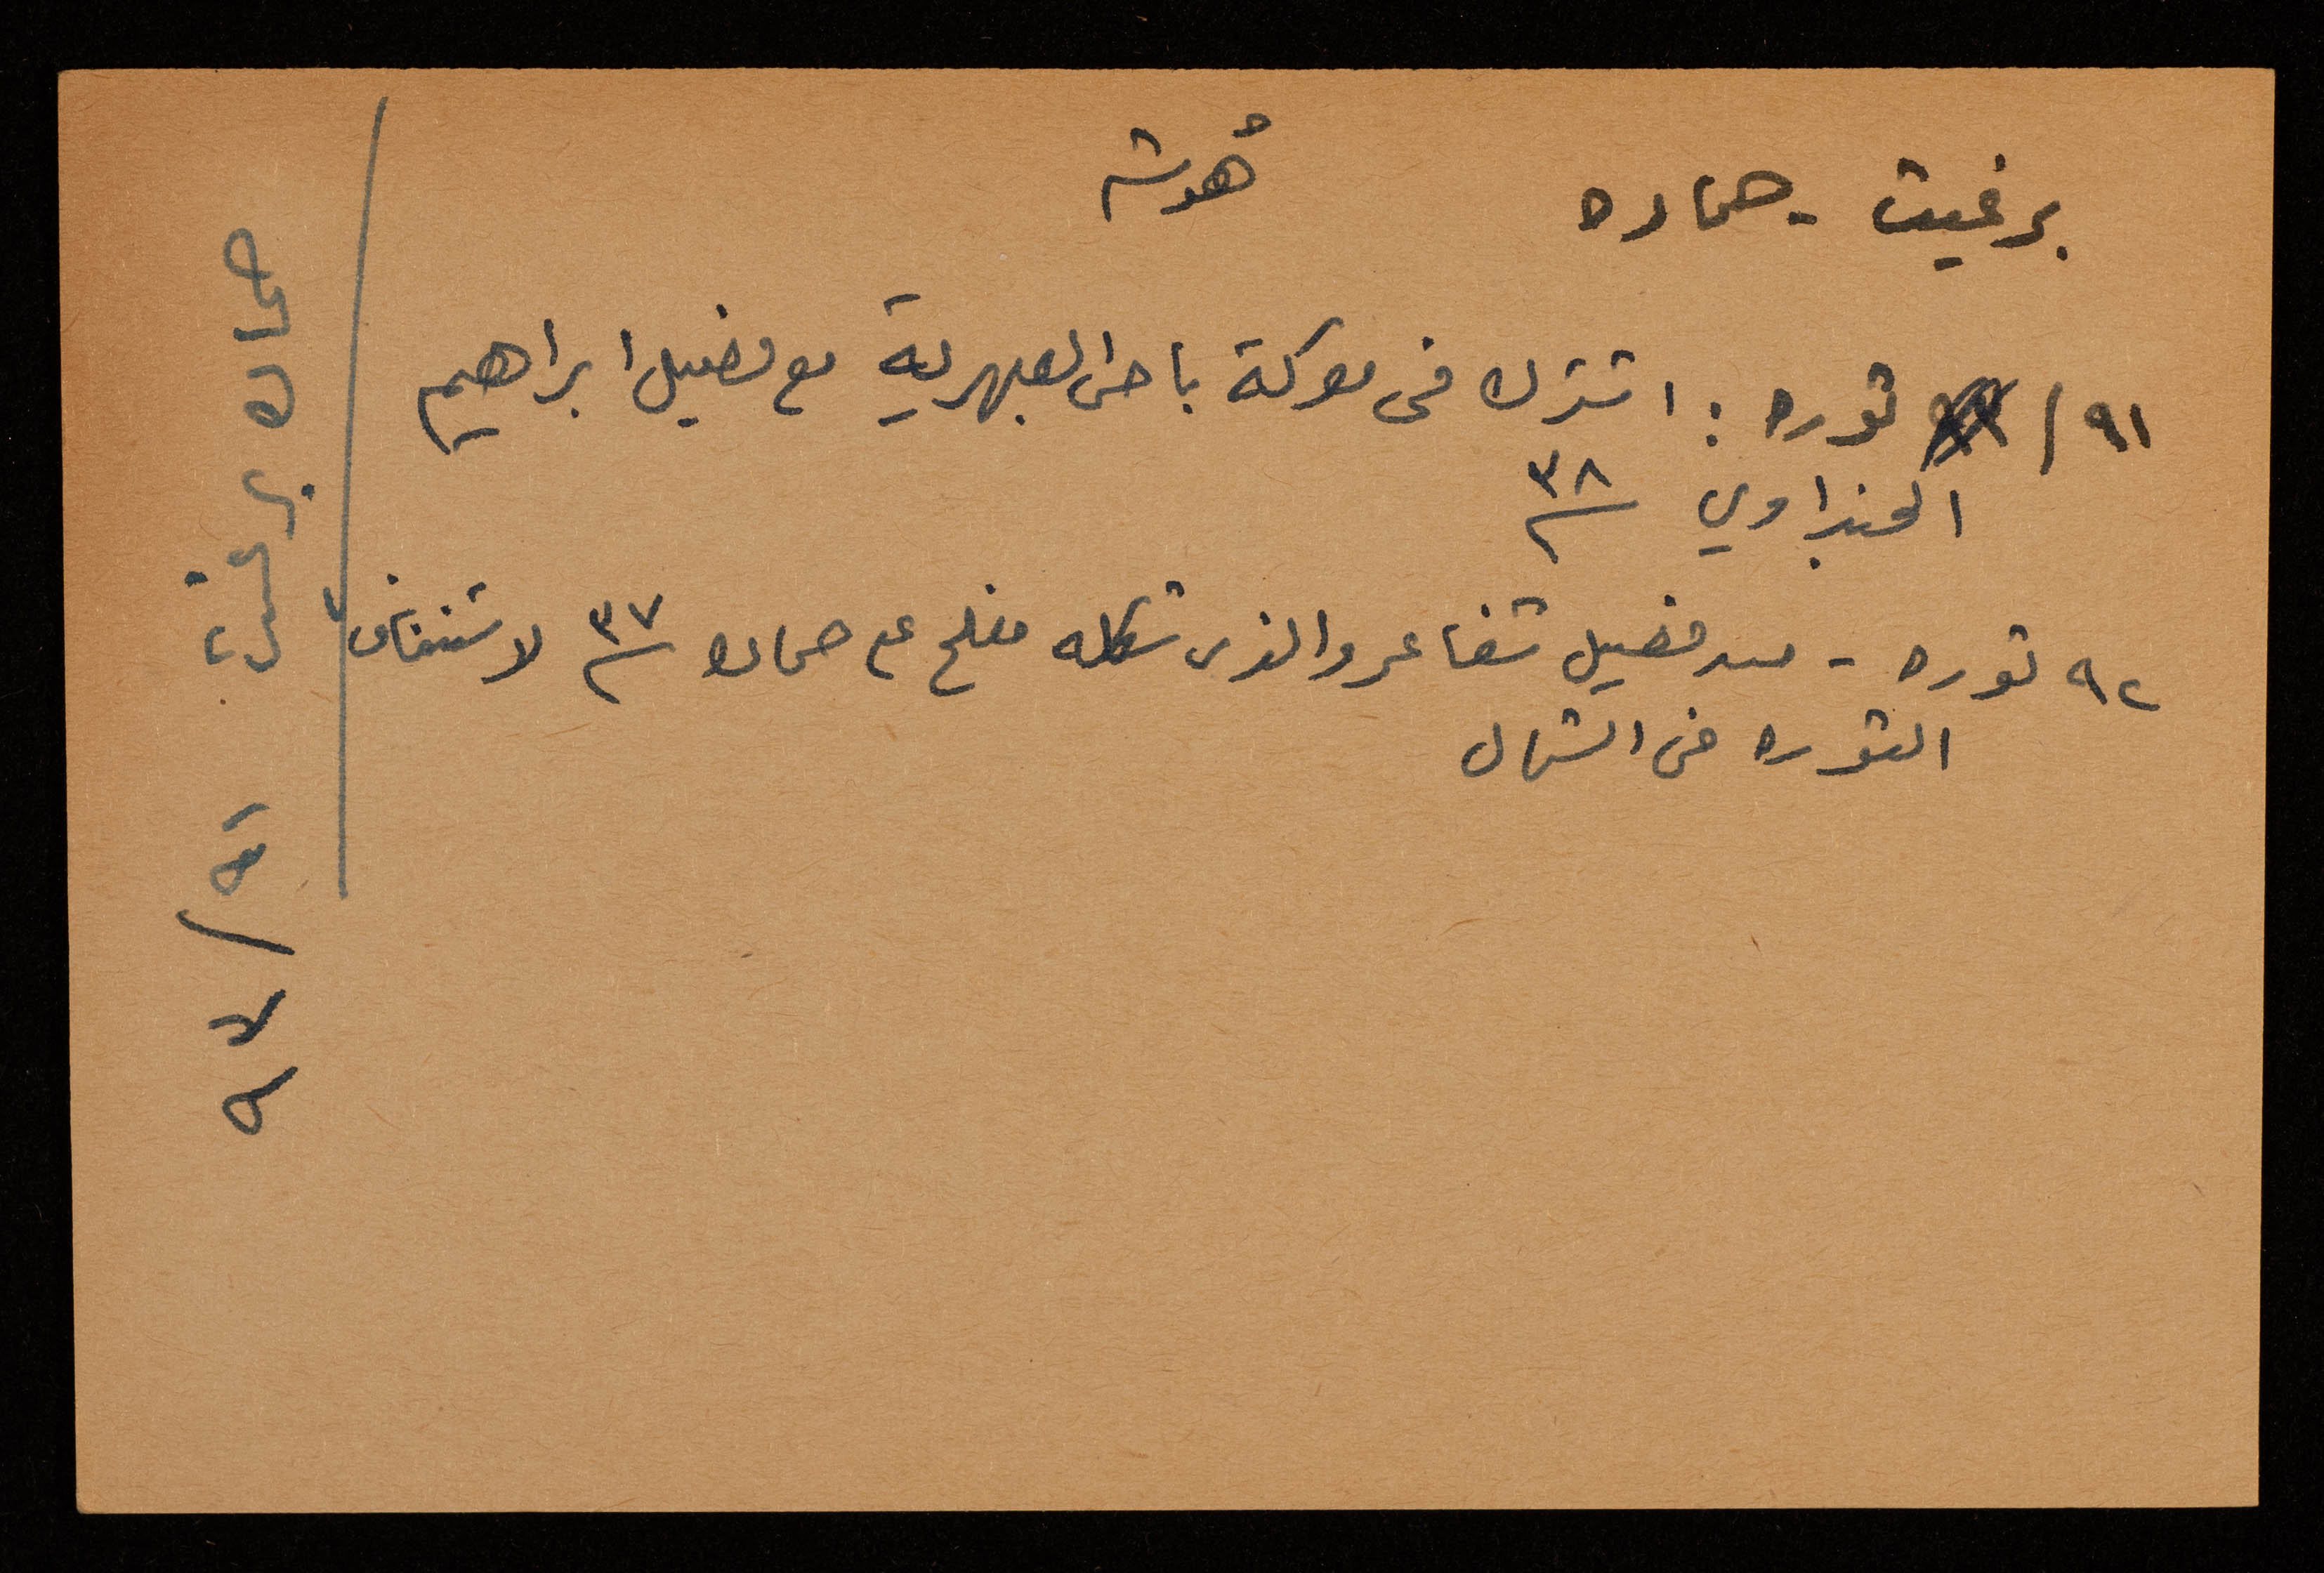 برغيت - حماده
هُوشه
٩١ / ثوره : اشترك فى معركة باحش العبهرية مع فصيل ابراهيم
الحنداوي ٣٨
٩٢ ثوره - من فصيل شفاعمرو الذى شكله مفلح ع حماده ٣٧ لاستئناف
الثوره فى الشمال
حماده برغيت ٩١ / ٩٢